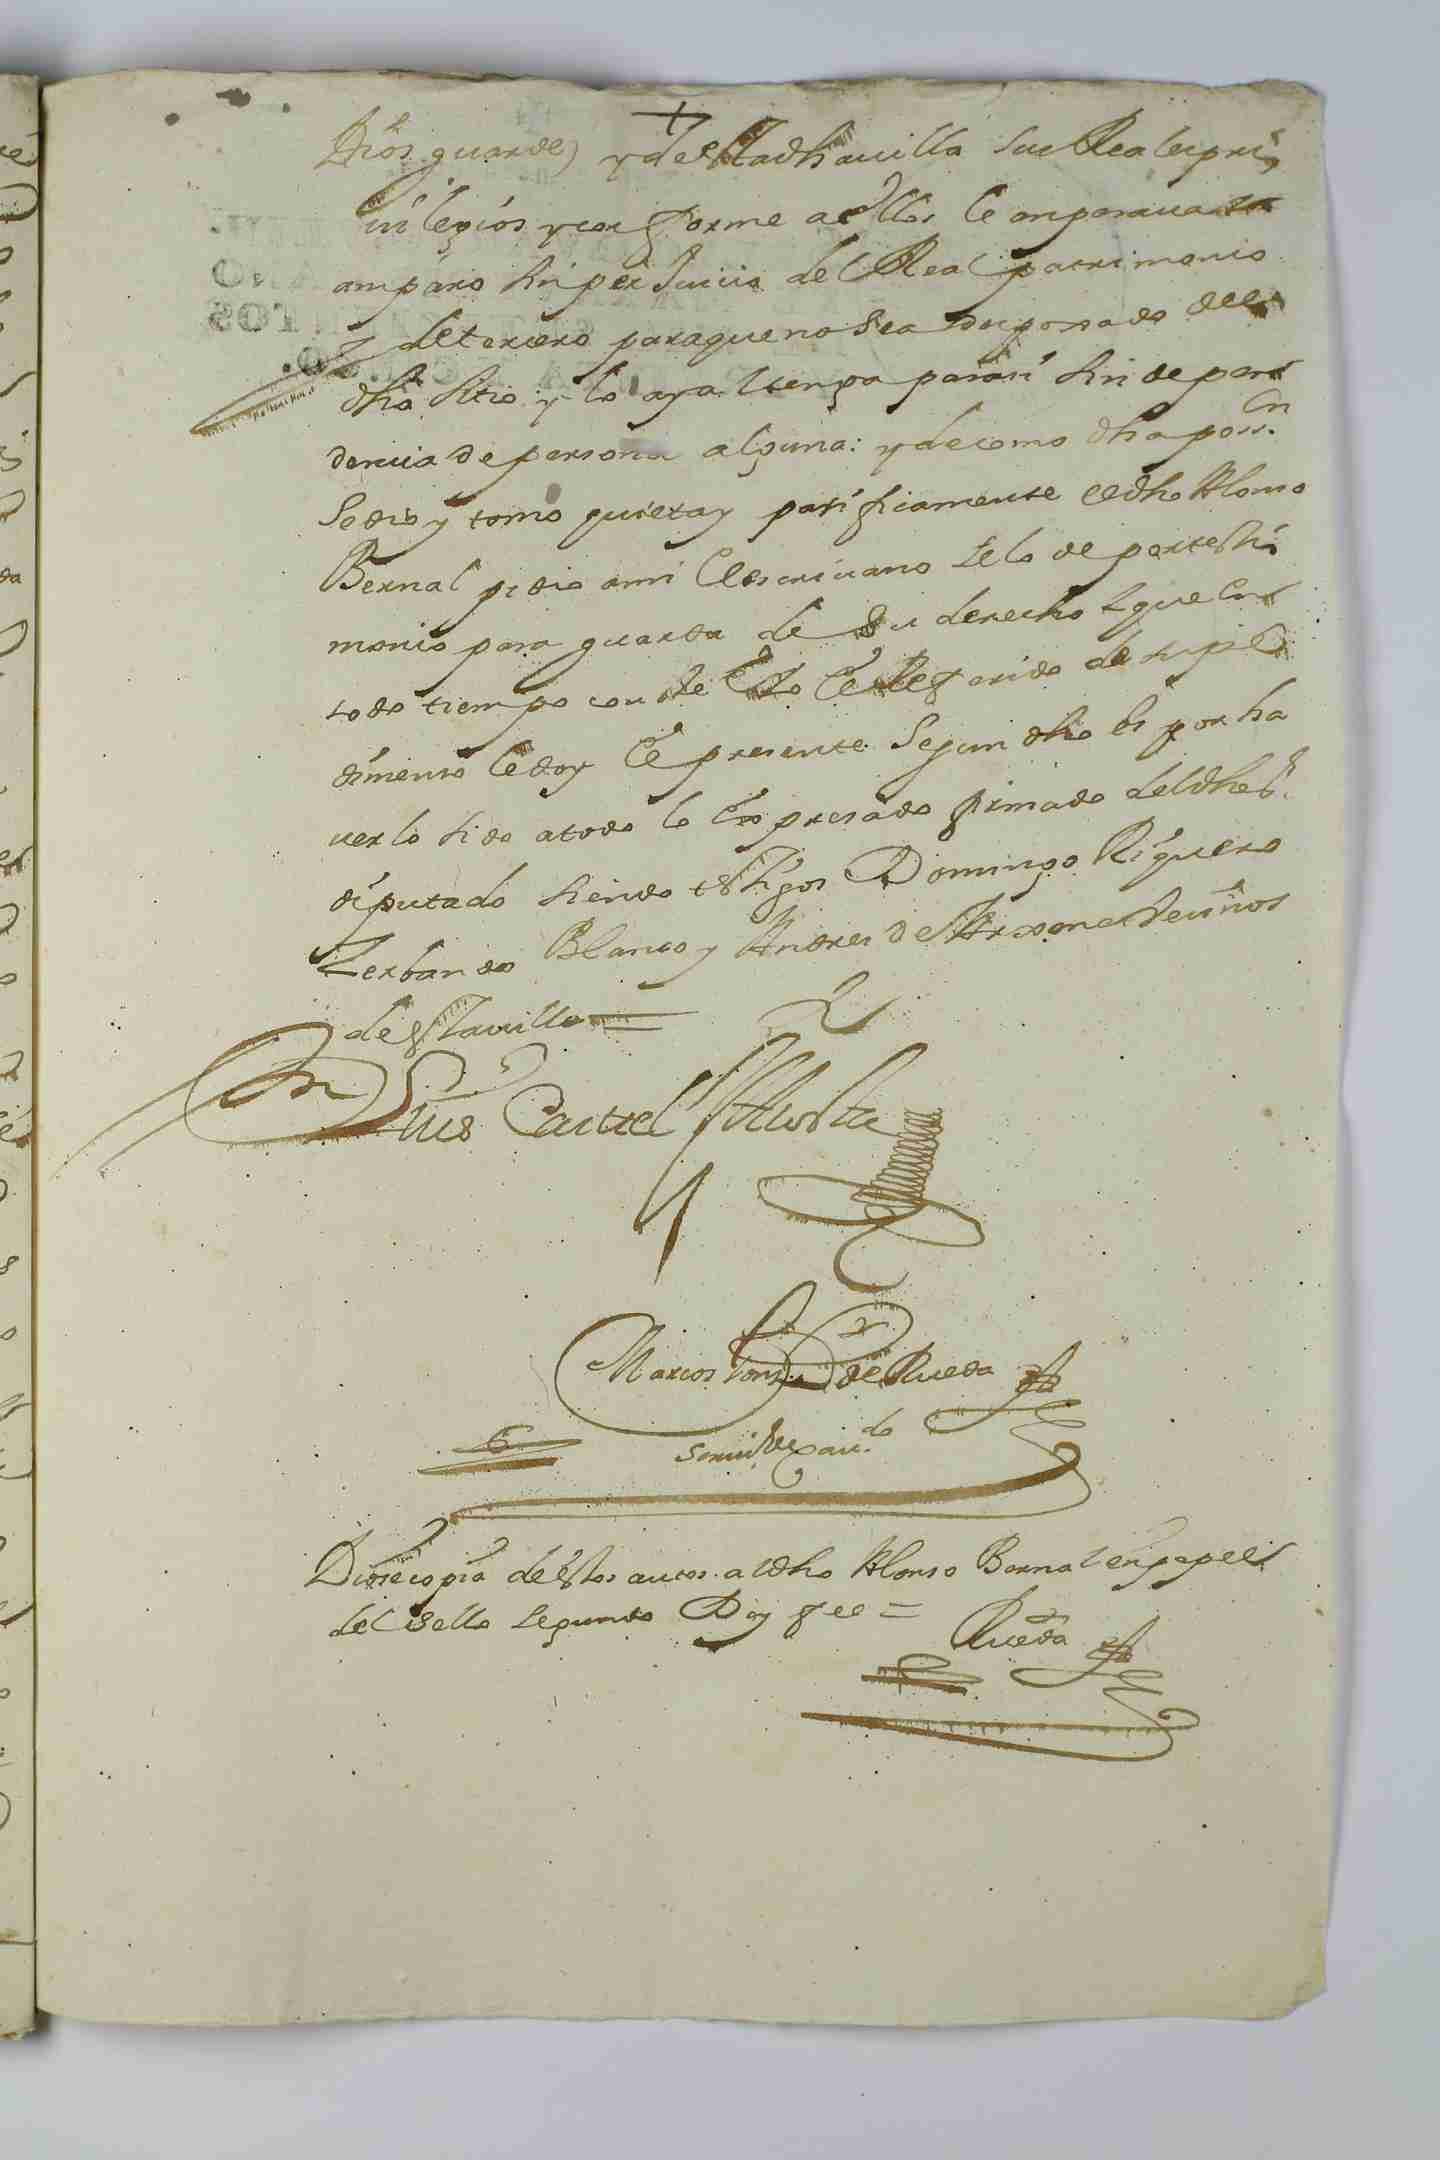 Dios guarde) y de esta dha villa sus Reales pri
uilegios y conforme a ellos le anparaua
amparo sin perJuicio del Real patrimonio
y detercero para que no sea desposeado del
dho sitio y lo aya ltenga parasi sin depen
dencia de persona alguna: y decomo dha poss.on
Se dio y tomo quieta y pasificamente el dho Alonso
Bernal pidio ami el escriuano selo de por testi
monio para guarda de su derecho y que en
todo tiempo conste Yo el Referido de supe
dimento le doy el presente Segun dho es por ha
uerlo sido atodo lo expresado firmado del dho s.r
diputado siendo testigos Domingo Riguero
Zerbando Blanco y Andres de vecinos
desta uilla =
Luis
Marcos de Rueda
Diose copia destos autos al dho Alonso Bernal en papel
del sello segundo Doy fee =
Rueda